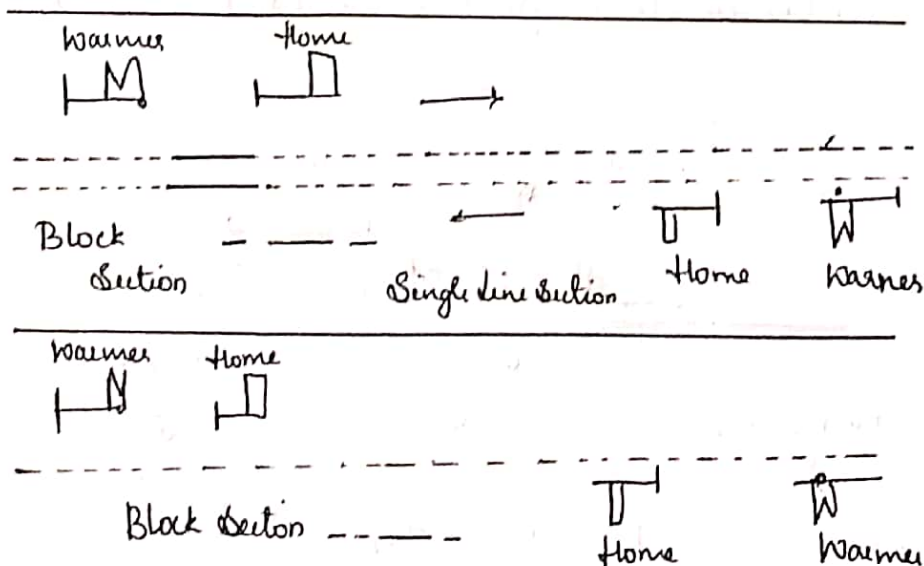 Warner Home
Block
Section
Single Line Section
Home Warner
Warner Home
Block Section
Home Warner